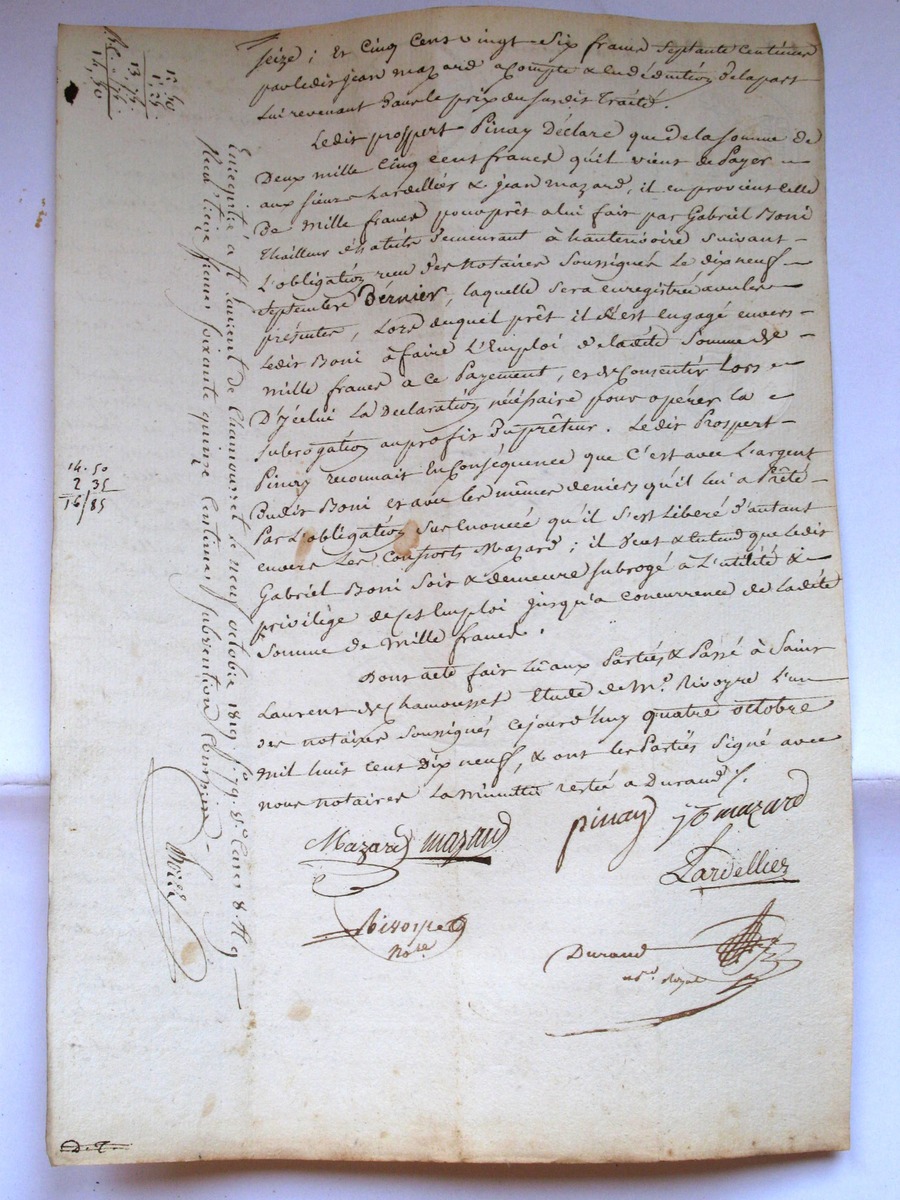 Seize ; et cinq cent vingt six francs septante centimes
par ledit jean mazard a compte & en déduction de la part
lui revenant dans le prix du susdit Traité.
Ledit prospert Pinay Déclare que de la somme de
Deux mille cinq cent francs qu'il vient de Payer
aux sieurs Lardellier & jean mazard, il en provient celle
De mille francs pour prêt a lui fait par Gabriel Boni
Thailleur d'habits demeurant à hauterivoire suivant
L'obligation reçu des Notaires soussignés Le dix neuf
Septembre Dernier, laquelle sera enregistrée avec les
présentes, Lors duquel prêt il s'est engagé envers
Ledit Boni à faire L'Emploi de ladite somme de
mille francs a ce Payement, et de consentir Lors
D'jcelui La Déclaration nécessaire pour opérer la
subrogation au profit du prêteur. Ledit Prospert
Pinay reconnait En conséquence que c'est avec L'argent
Dudit Boni et avec les mêmes deniers qu'il lui a Prêté
Par L'obligation sus énoncée qu'il s'est Libéré d'autant
envers Les Consorts Mazard ; il veut & entend que Ledit
Gabriel Boni soit & demeure subrogé à L'utilité &
privilège de cet Emploi jusqu'a concurrence de Ladite
somme de mille francs.
Dont acte fait Lû aux Parties & Passé à Saint
Laurent de Chamousset Etude de Me. Rivoyre L'un
des notaires soussignés cejourd'huy quatre octobre
mil huit cent Dix neuf, & ont les Parties signé avec
nous notaires La minutte restée a Durand.
Mazard mazard
pinay
mazard
Lardellier
Rivoyre
Nore
Durand
not. Royal
Enregistré à St Laurent de Chamousset le neuf octobre 1819
Reçu soixante quinze centimes subvention comprise
13. 75
14, 50
14. 50
2 35
16/85
D. T.